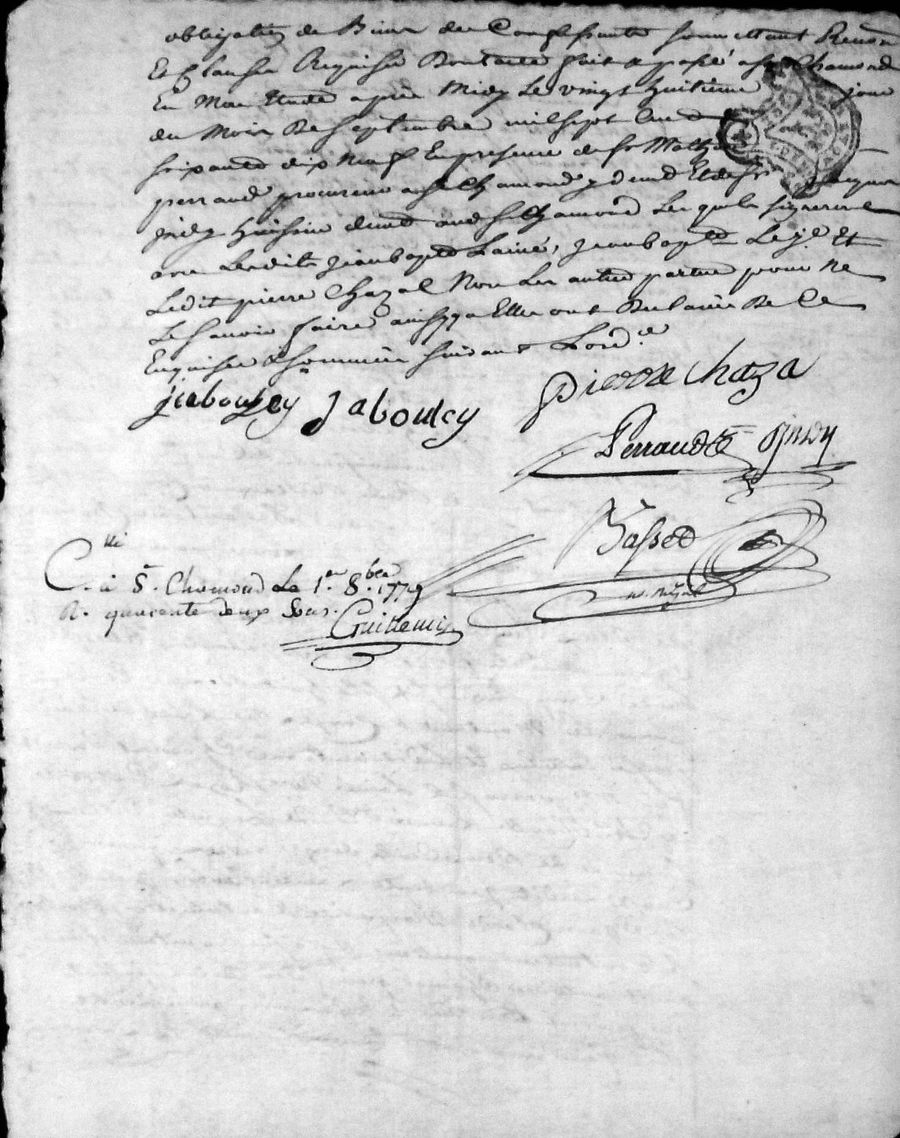 obligation de Biens de Confessante soumettant Renon
Et Clauses Requises Dont acte fait & passé a St Chamond
En Mon Etude apres Midy Le vingt huitieme jour
du Mois De Septembre mil sept Cent
soixante dix Neuf En presence de Sr
perraud procureur a St Chamond y demt Et de Sr
huissier demt aud St Chamond Lesquels signeront
avec Lesdits jean bapte Lainé, jean bapte Le je. Et
Ledit pierre Chazal Non Les autres parties pour Ne
Le Savoir faire ainsy qu'Elles ont Declaré De Ce
Enquises & Sommées suivant L'ord.ce
jabouley jabouley pierre Chaza
Perraud
Basset
no. Royal
C. lé à St. Chamond Le 1er 8.bre 1779
R. quarente deux Sous.
Guillemin